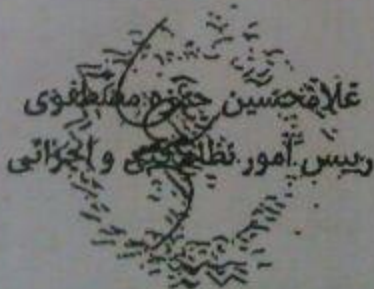 غلامحسین حمزه مصطفوی
رییس امور نظام فنی و اجرائی